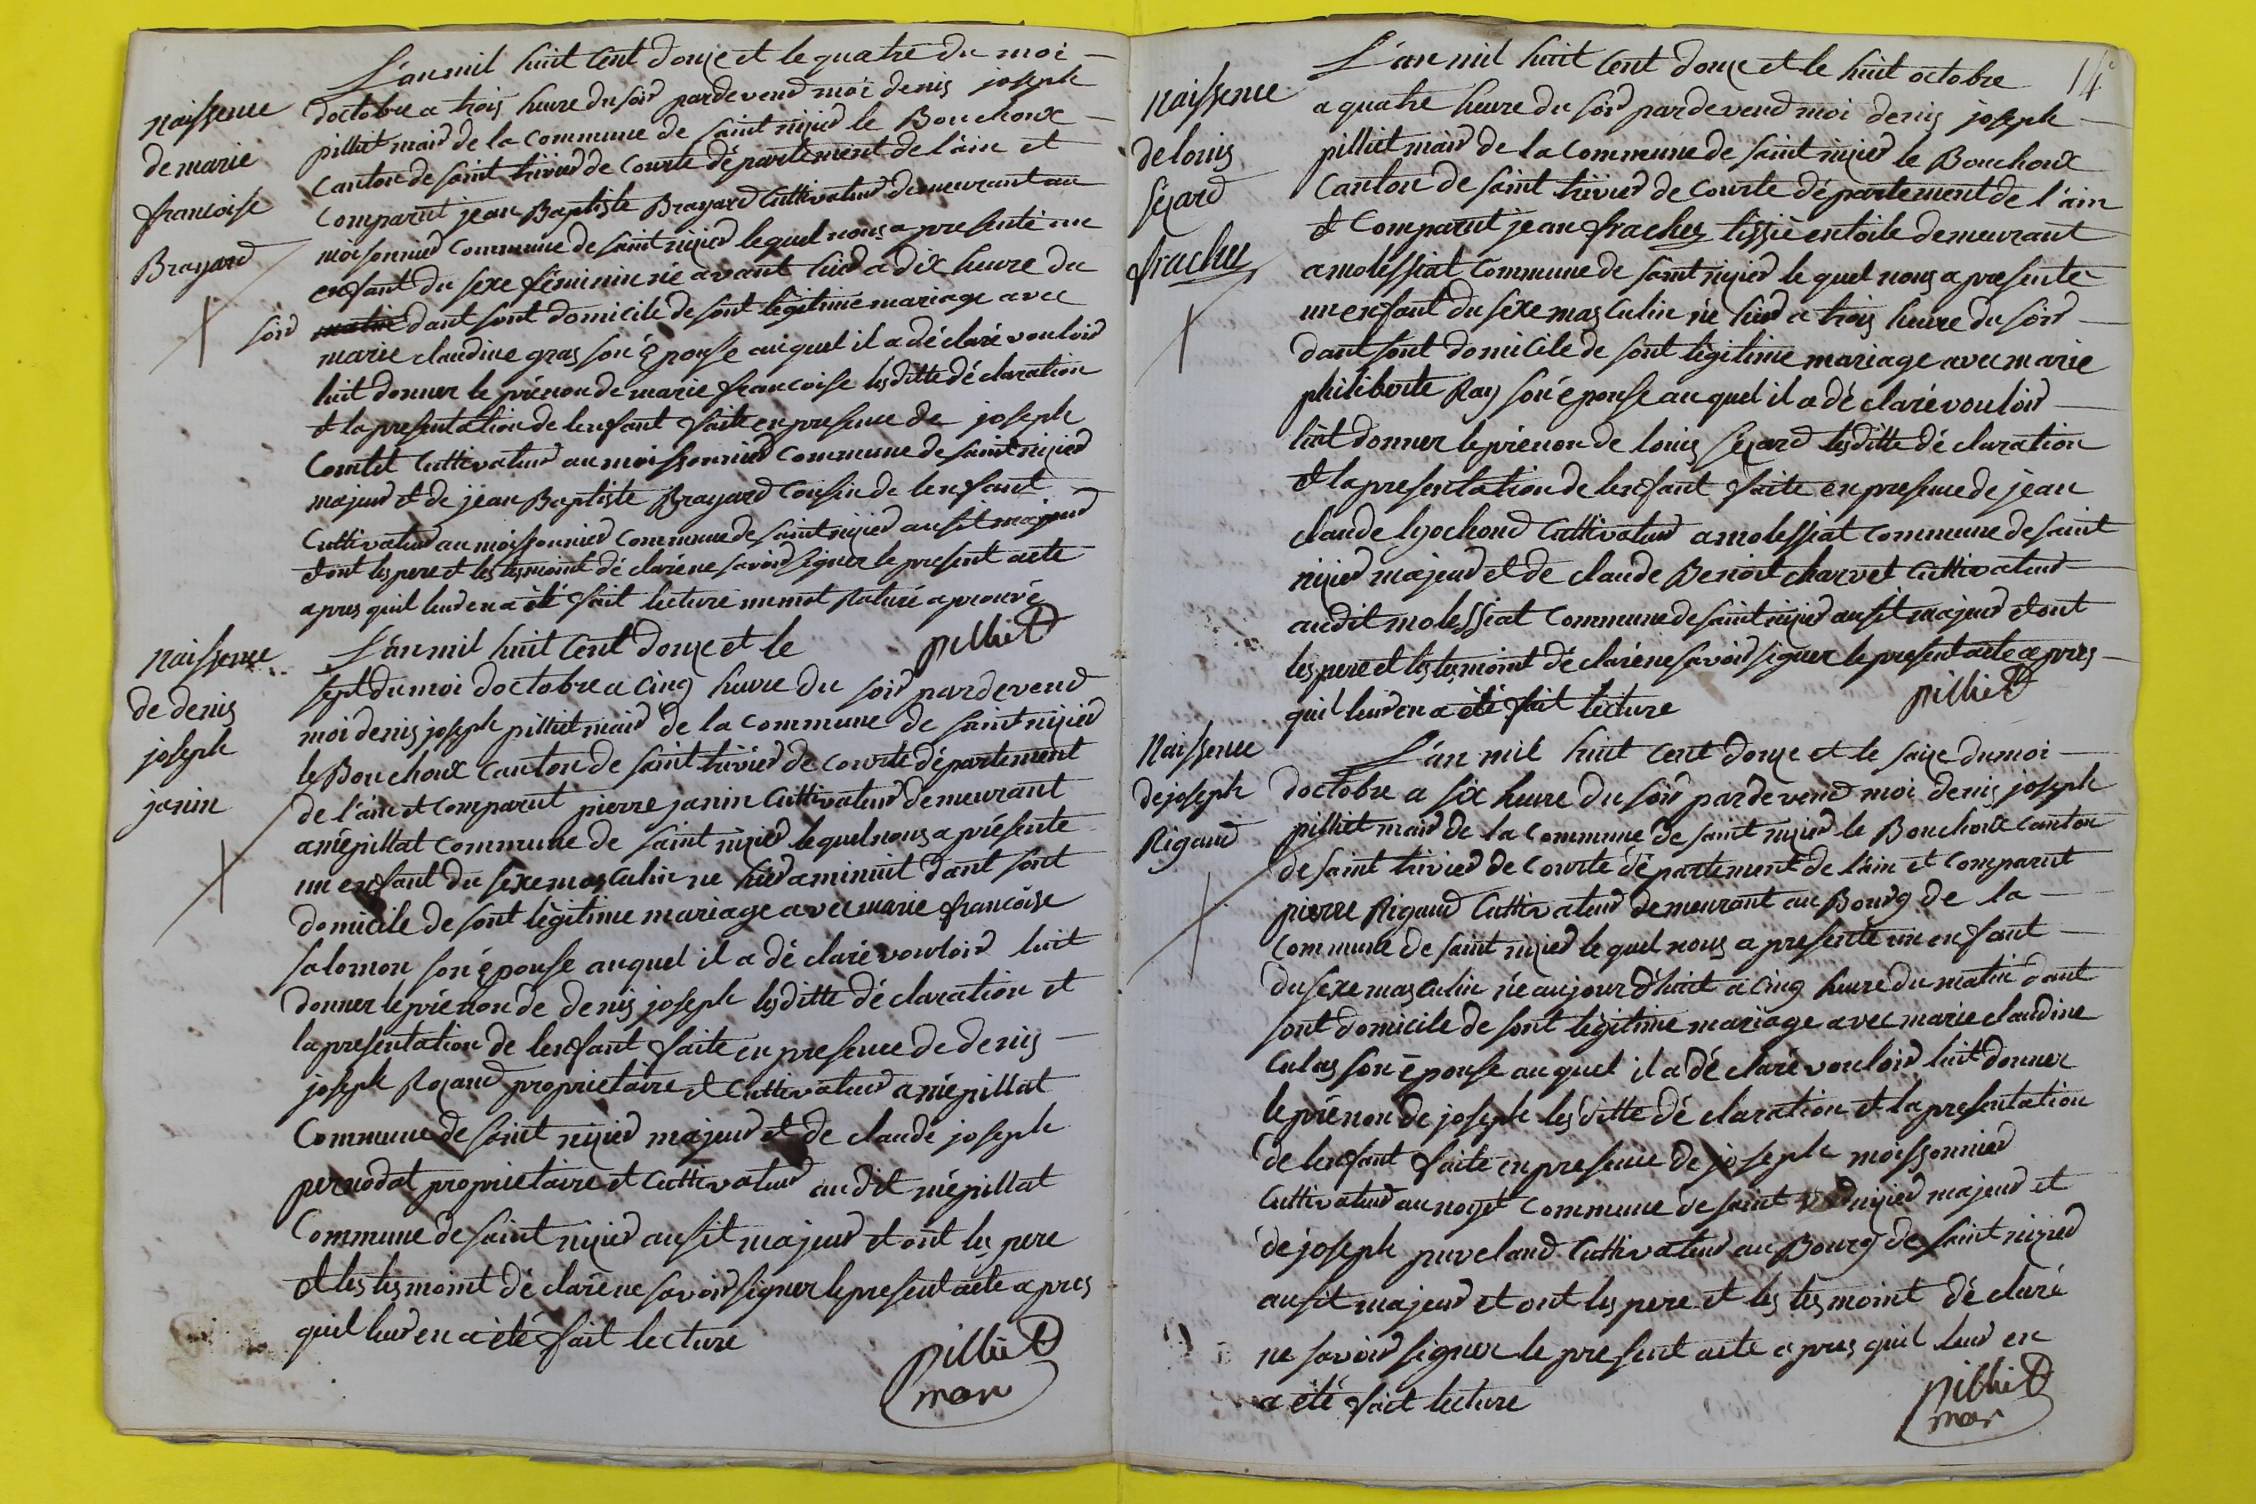 naissence
de marie
francoise
Brayard
L'an mil huit cent douze et le quatre du moi
doctobre a trois heure du soir pardevend moi denis joseph
pilliet mair de la commune de saint nizier le Bouchoux
canton de saint trivier de courte département de l'ain et
comparut jean Baptiste Brayard cuttivateur demeurant au
moisonnier commune de saint nizier lequel nous a presenté un
enfant du sexe féminin né avant hier a dix heure du
soir dant sont domicile de sont légitime mariage avec
marie claudine gras son épouse auquel il a déclaré vouloir
luit donner le prénon de marie francoise lesditte déclaration
et la presentation de lenfant faite en presence de joseph
Comtet cuttivateur au moissonnier commune de saint nizier
majeur et de jean Baptiste Brayard cousin de lenfant
cuttivateur au moissonnier commune de saint nizier ausit majeur
et ont les pere et les tesmoint déclaré ne savoir signer le present acte
apres quil leur en a été fait lecture un mot raturé aprouvé
pilliet
naissence
de denis
joseph
janin
L'an mil huit cent douze et le
sept du moi doctobre a cinq heure du soir pardevend
moi denis joseph pilliet mair de la commune de saint nizier
le Bouchoux canton de saint trivier de courte département
de l'ain et comparut pierre janin cuttivateur demeurant
a népillat commune de saint nizier lequel nous a présenté
un enfant du sexe masculin ne hier a minuit dant sont
domicile de sont légitime mariage avec marie francoise
salomon son épouse auquel il a déclaré vouloir luit
donner le prénon de denis joseph lesditte déclaration et
la presentation de lenfant faite en presence de denis
joseph Rozand proprietaire et cuttivateur a népillat
Commune de saint nizier majeur et de claude joseph
pernodat proprietaire et cuttivateur audit népillat
Commune de saint nizier ausit majeur et ont les pere
et les tesmoint déclaré ne savoir signer le present acte apres
quil leur en a été fait lecture
pilliet
mair
14e
naissence
de louis
sezard
frachez
L'an mil huit cent douze et le huit octobre
a quatre heure du soir pardevend moi denis joseph
pilliet mair de la commune de saint nizier le Bouchoux
canton de saint trivier de courte département de l'ain
et comparut jean frachez tissié en toile demeurant
a molessiat commune de saint nizier le quel nous a presente
un enfant du sexe masculin né hier a trois heure du soir
dant sont domicile de sont légitime mariage avec marie
philiberte Ray son épouse auquel il a déclaré vouloir
luit donner le prénon de louis sezard lesditte déclaration
et la presentation de lenfant faite en presence de jean
claude lyochond cuttivateur a molessiat commune de saint
nizier majeur et de claude Benoit charvet cuttivateur
audit molessiat commune de saint nizier ausit majeur et ont
les pere et les tesmoint déclaré ne savoir signer le present acte apres
quil leur en a été fait lecture
pilliet
naissence
de joseph
Rigaud
L'an mil huit cent douze et le saize du moi
doctobre a six heure du soir pardevend moi denis joseph
pilliet mair de la commune de saint nizier le Bouchoux canton
de saint trivier de courte département de l'ain et comparut
pierre Rigaud cuttivateur demeurant au Bourg de la
commune de saint nizier le quel nous a presenté un enfant
du sexe masculin né aujour d'huit a cinq heure du matin dant
sont domicile de sont légitime mariage avec marie claudine
Culas son épouse auquel il a déclaré vouloir luit donner
le prénon de joseph lesditte déclaration et la presentation
de lenfant faite en presence de joseph moissonnier
cuttivateur au noyet commune de saint nizier majeur et
de joseph puveland cuttivateur au Bourg de saint nizier
ausit majeur et ont les pere et les tesmoint déclaré
ne savoir signer le present acte apres quil leur en
a été fait lecture
pilliet
mair